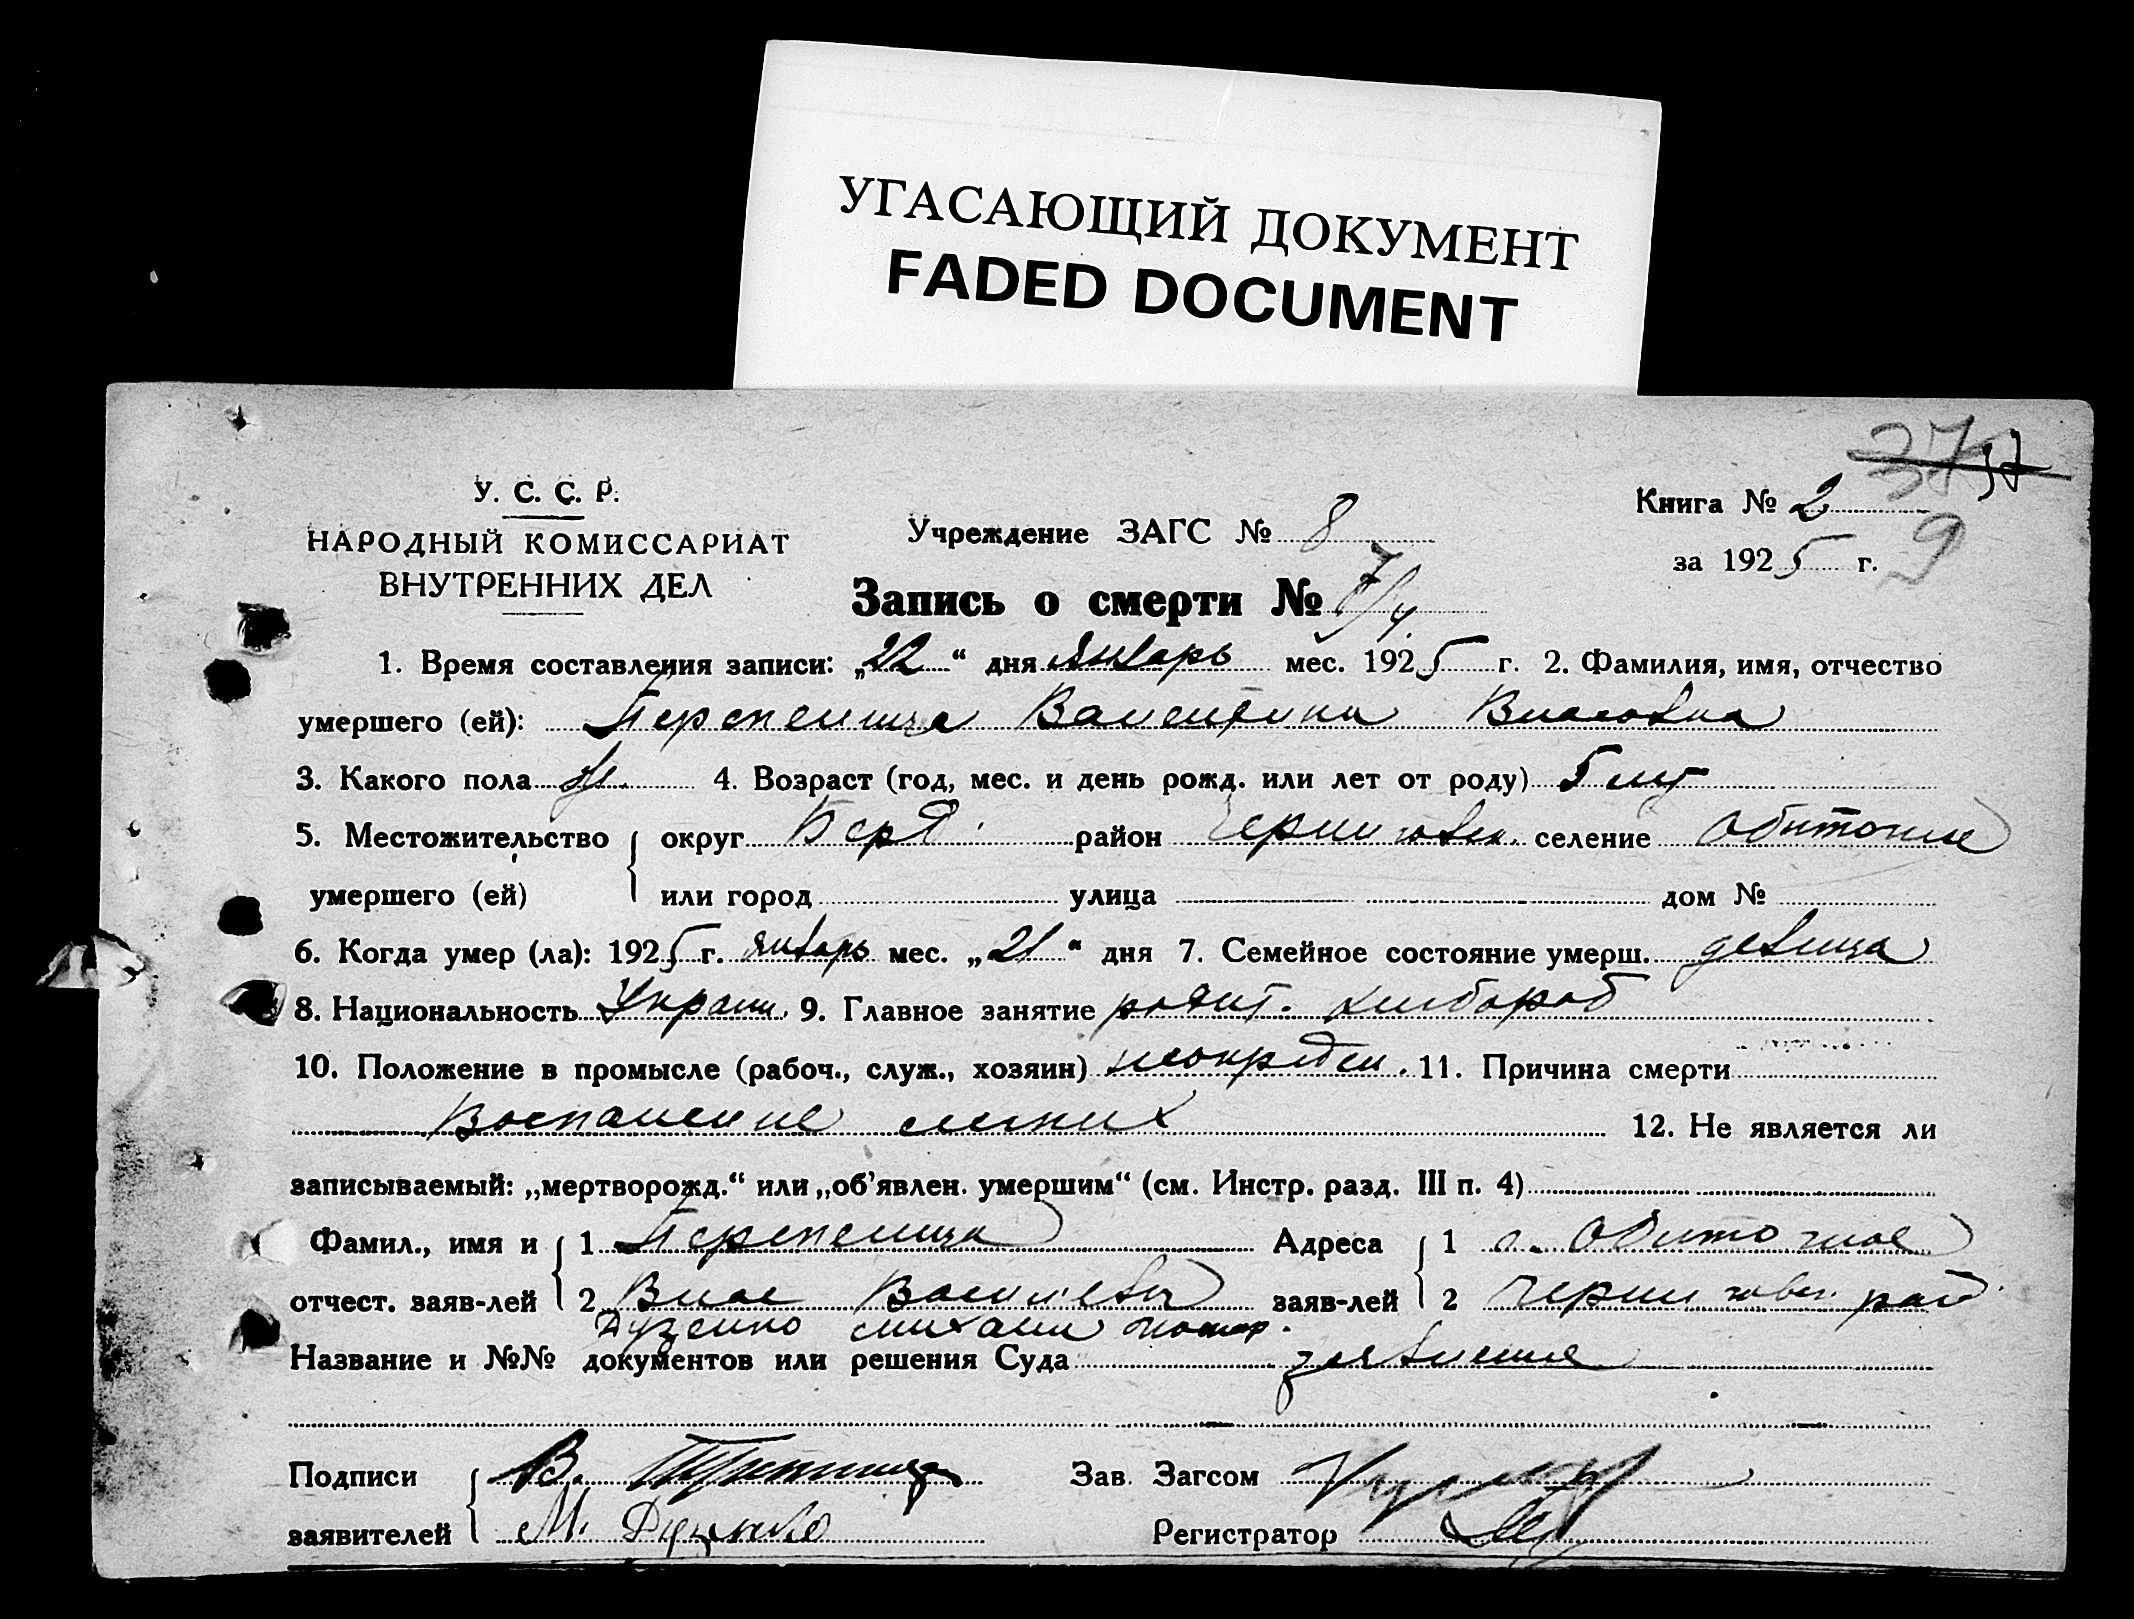 УГАСАЮЩИЙ ДОКУМЕНТ
FADED DOCUMENT
37 37
У. С. С. Р.
НАРОДНЫЙ КОМИССАРИАТ
ВНУТРЕННИХ ДЕЛ
Учреждение ЗАГС № 8
Книга № 2
за 1925 г. 9
Запись о смерти № 7/у
1. Время составления записи: „22“ дня январь мес. 1925 г. 2. Фамилия, имя, отчество
умершего (ей): Перепелица Валентина Власовна
3. Какого пола ж. 4. Возраст (год, мес. и день рожд. или лет от роду) 5 лет
5. Местожительство округ Берд. район Черниговск. селение Обиточне
умершего (ей) или город улица дом №
6. Когда умер (ла): 1925 г. январь мес. „21“ дня 7. Семейное состояние умерш. девица
8. Национальность Украин. 9. Главное занятие родит. хлебороб
10. Положение в промысле (рабоч., служ., хозяин) 11. Причина смерти
Воспаление легких 12. Не является ли
записываемый: „мертворожд.“ или „об’явлен. умершим“ (см. Инстр. разд. III п. 4)
Фамил., имя и 1 Перепелица Адреса 1 с. Обиточное
отчест. заяв-лей 2 Влас Васильев заяв-лей 2 Черниговск. рай
Дуденко Михаил
Название и №№ документов или решения Суда заявление
Подписи В. Зав. Загсом
заявителей М. Регистратор